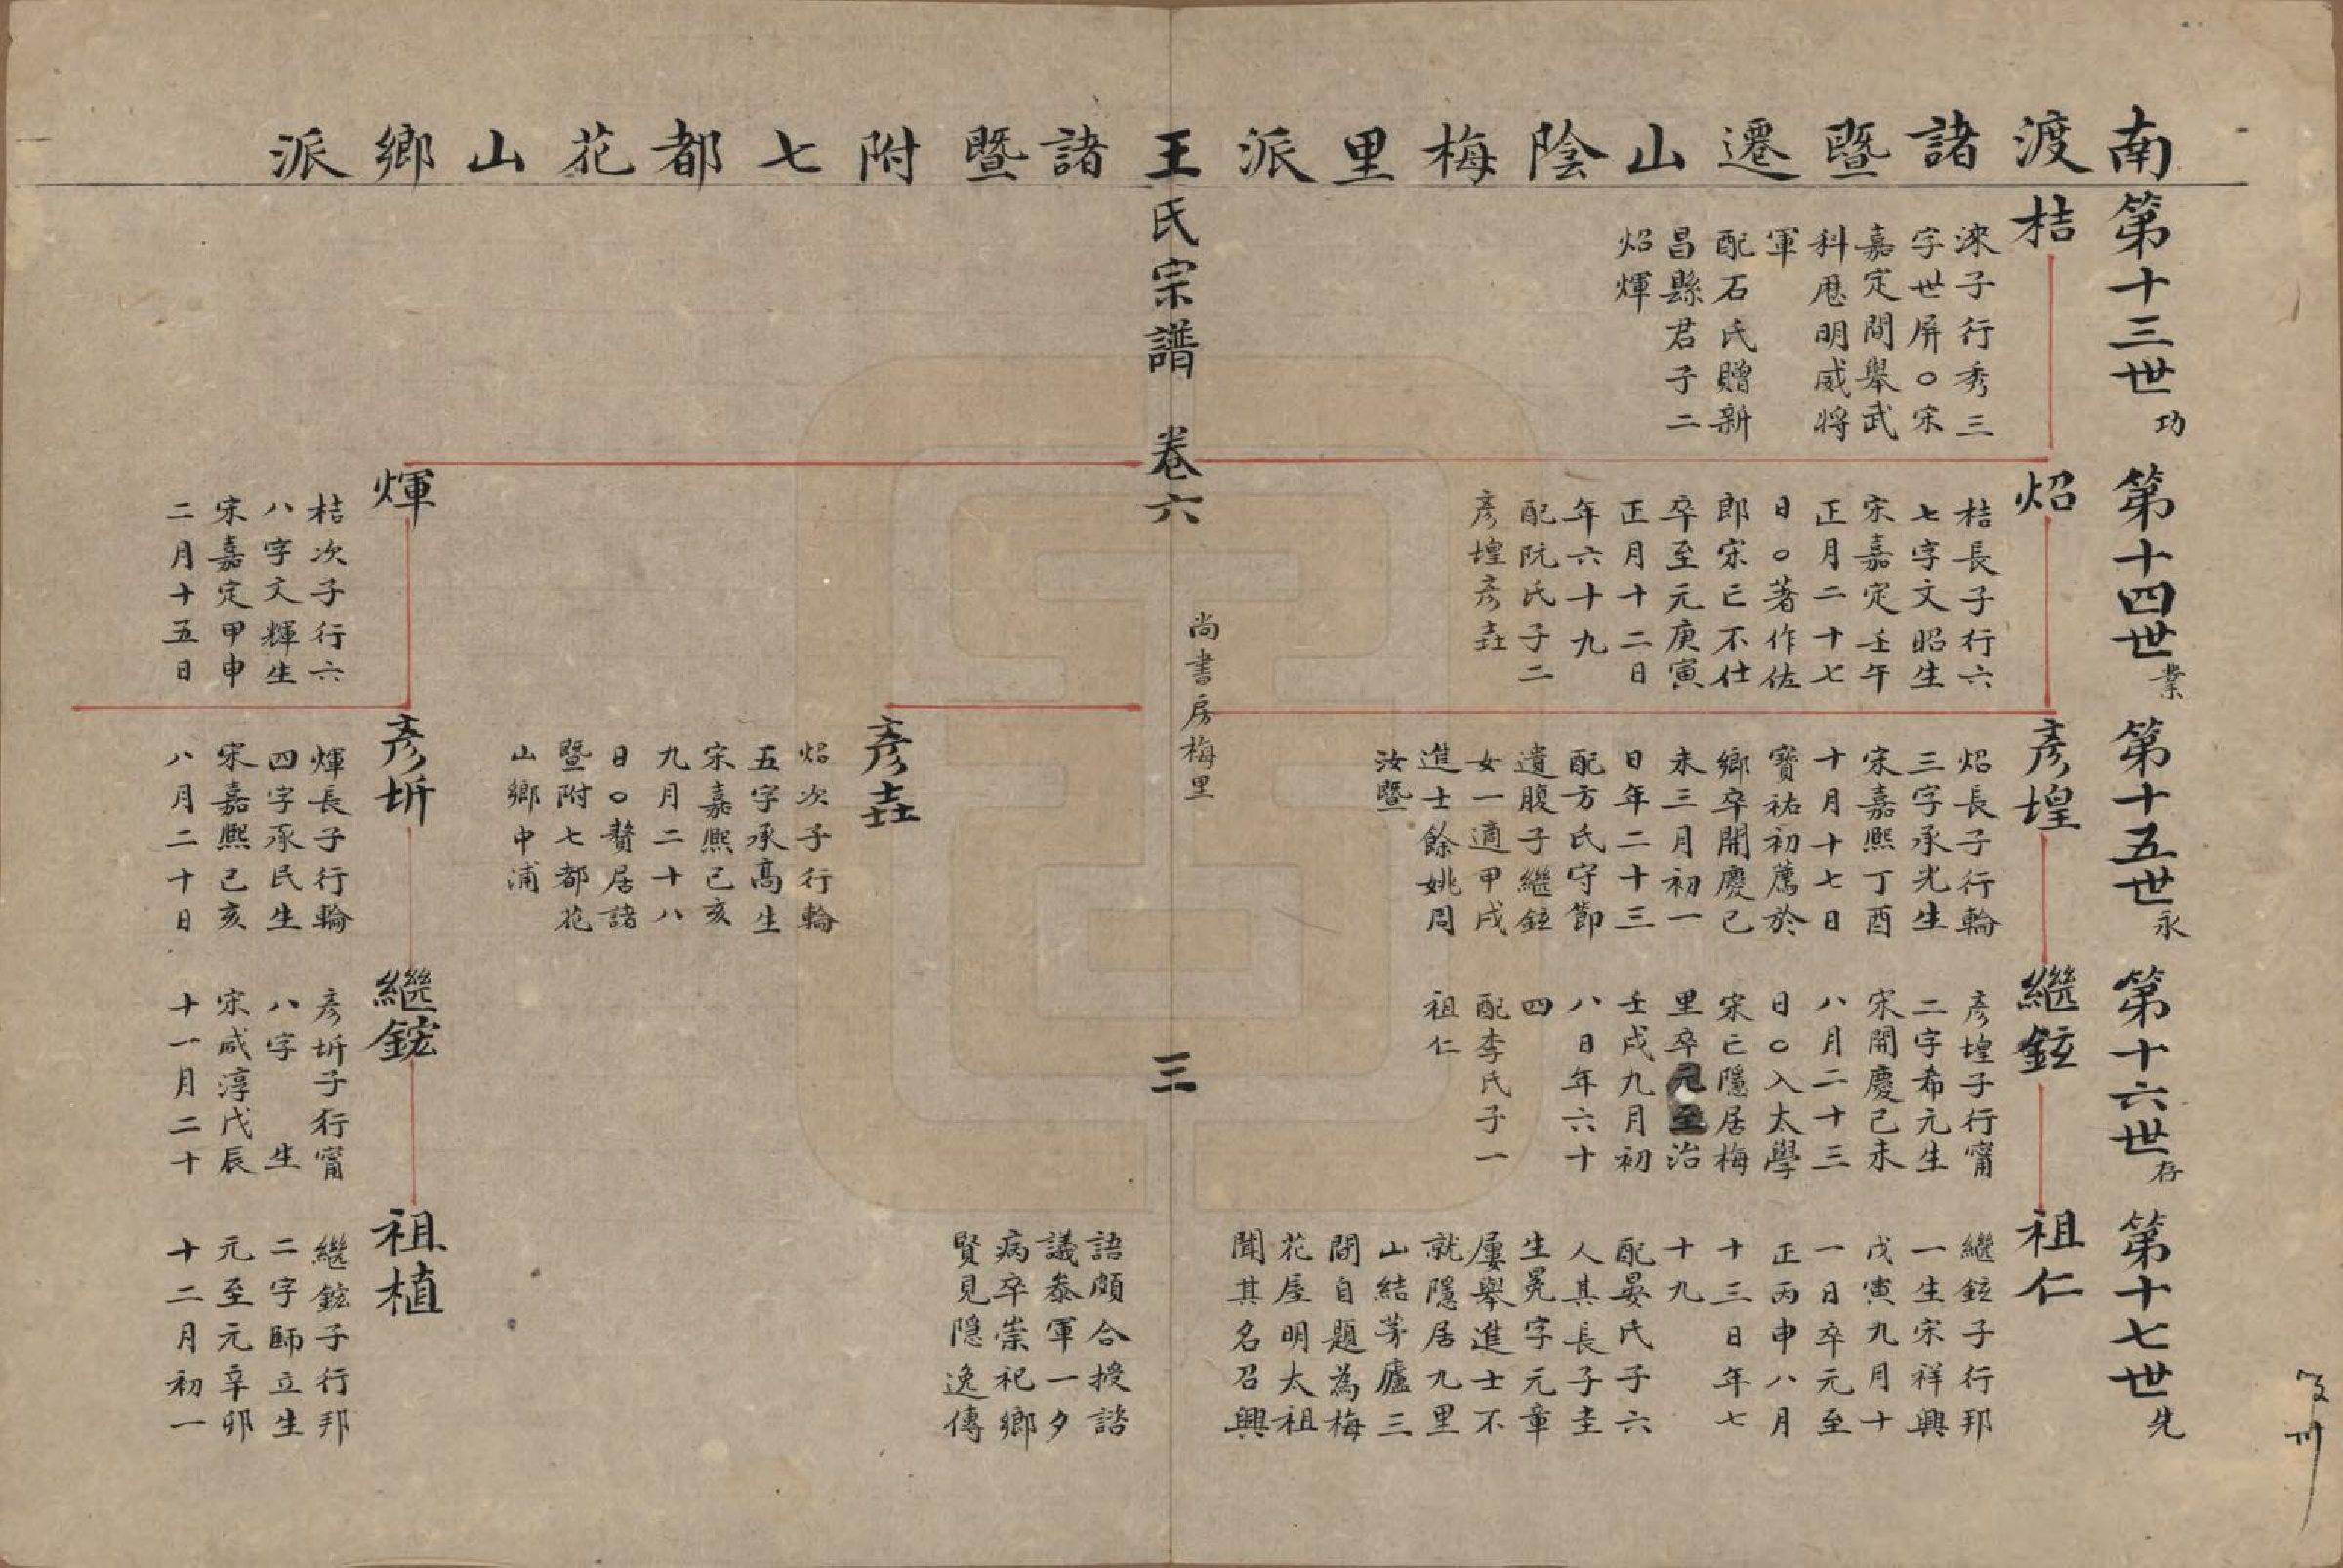 南渡諸暨遷山陰梅里派
王氏宗譜 卷六
尚書房梅里
三
諸暨附七都花山鄉派
第十三世功
桔
淶子行秀三
字世屏○宋
嘉定間舉武
科歷明威將
軍
配石氏贈新
昌縣君子二
炤煇
第十四世業
炤
桔長子行六
七字文昭生
宋嘉定壬午
正月二十七
日○著作佐
郎宋亡不仕
卒至元庚寅
正月十二日
年六十九
配阮氏子二
彥堭彥壵
煇
桔次子行六
八字文輝生
宋嘉定甲申
二月十五日
第十五世永
彥堭
炤長子行輪
三字承光生
宋嘉熙丁酉
十月十七日
寶祐初薦於
鄉卒開慶己
未三月初一
日年二十三
配方氏守節
遺腹子繼鉉
女一適甲戌
進士餘姚周
汝暨
彥壵
炤次子行輪
五字承高生
宋嘉熙己亥
九月二十八
日○贅居諸
暨附七都花
山鄉中浦
彥圻
煇長子行輪
四字承民生
宋嘉熙己亥
八月二十日
第十六世存
繼鉉
彥堭子行甯
二字希元生
宋開慶己未
八月二十三
日○入太學
宋亡隱居梅
里卒元至治
壬戌九月初
八日年六十
四
配李氏子一
祖仁
繼鋐
彥圻子行甯
八字 生
宋咸淳戊辰
十一月二十
第十七世先
祖仁
繼鉉子行邦
一生宋祥興
戊寅九月十
一日卒元至
正丙申八月
十三日年七
十九
配晏氏子六
人其長子圭
生冕字元章
屢舉進士不
就隱居九里
山結茅廬三
間自題為梅
花屋明太祖
聞其名召興
語頗合授諮
議參軍一夕
病卒崇祀鄉
賢見隱逸傳
祖植
繼鋐子行邦
二字師立生
元至元辛卯
十二月初一